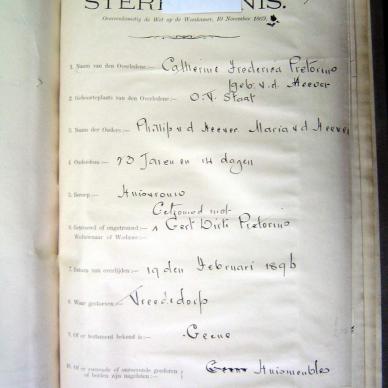 STER NIS.
Overeenkomstig de Wet op de Weeskamer, 19 November 1869.
1. Naam van den Overledene:— Catherine Frederica Pretorius
(geb. v.d. Heever
2. Geboorteplaats van den Overledene:— O.V. Staat
3. Naam der Ouders:— Phillip v d Heever Maria v d Heever
4. Ouderdom:— 73 Jaren en 14 dagen
5. Beroep:— Huisvrouw
Getrouwd met
6. Getrouwd of ongetrouwd:— Gert Pretorius
Weduwnaar of Weduwe:—
7. Datum van overlijden:— 19 den Februari 1896
8. Waar gestorven:— Vrededorp
9. Of er testament bekend is:— Geene
10. Of er roerende of onroerende goederen of beiden zijn nagelaten:— Huismeubles